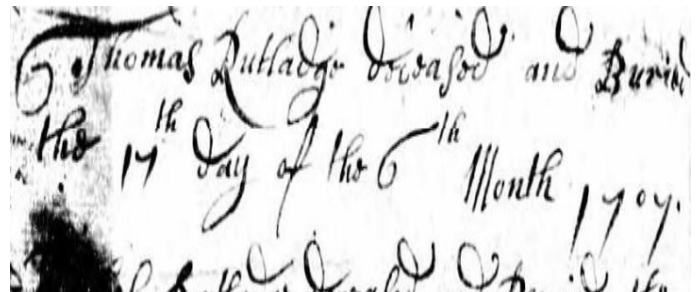 Thomas Rutladge deceased and Buried
the 17th day of the 6th Month 1707.